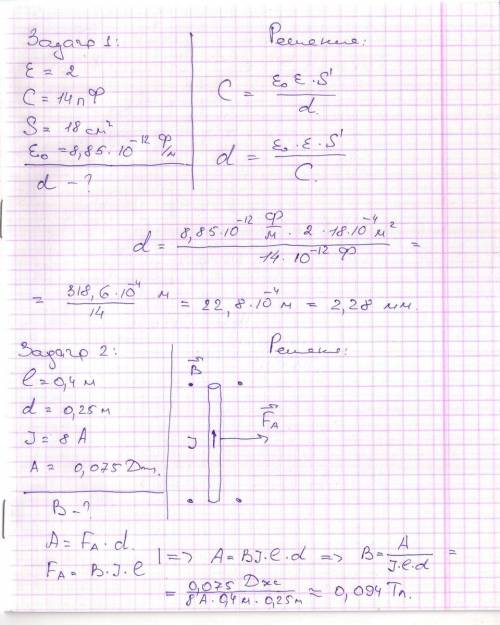 Задача 1:
Решение:
ε = 2
C = 14 пФ
S = 18 см²
ε₀ = 8,85·10⁻¹² Ф/м
d - ?
C = ε₀ ε · S / d.
d = ε₀ · ε · S / C.
d = 8,85·10⁻¹² Ф/м · 2 · 18·10⁻⁴ м² / 14·10⁻¹² Ф =
= 318,6·10⁻⁴ / 14 м = 22,8·10⁻⁴ м = 2,28 мм.
Задача 2:
Решен:
l = 0,4 м
d = 0,25 м
J = 8 А
A = 0,075 Дж.
B - ?
B⃗
J
F⃗A
A = FA · d.
FA = B·J·l
=> A = BJ·l·d => B = A / J·l·d =
= 0,075 Дж / 8А·0,4м·0,25м ≈ 0,094 Тл.